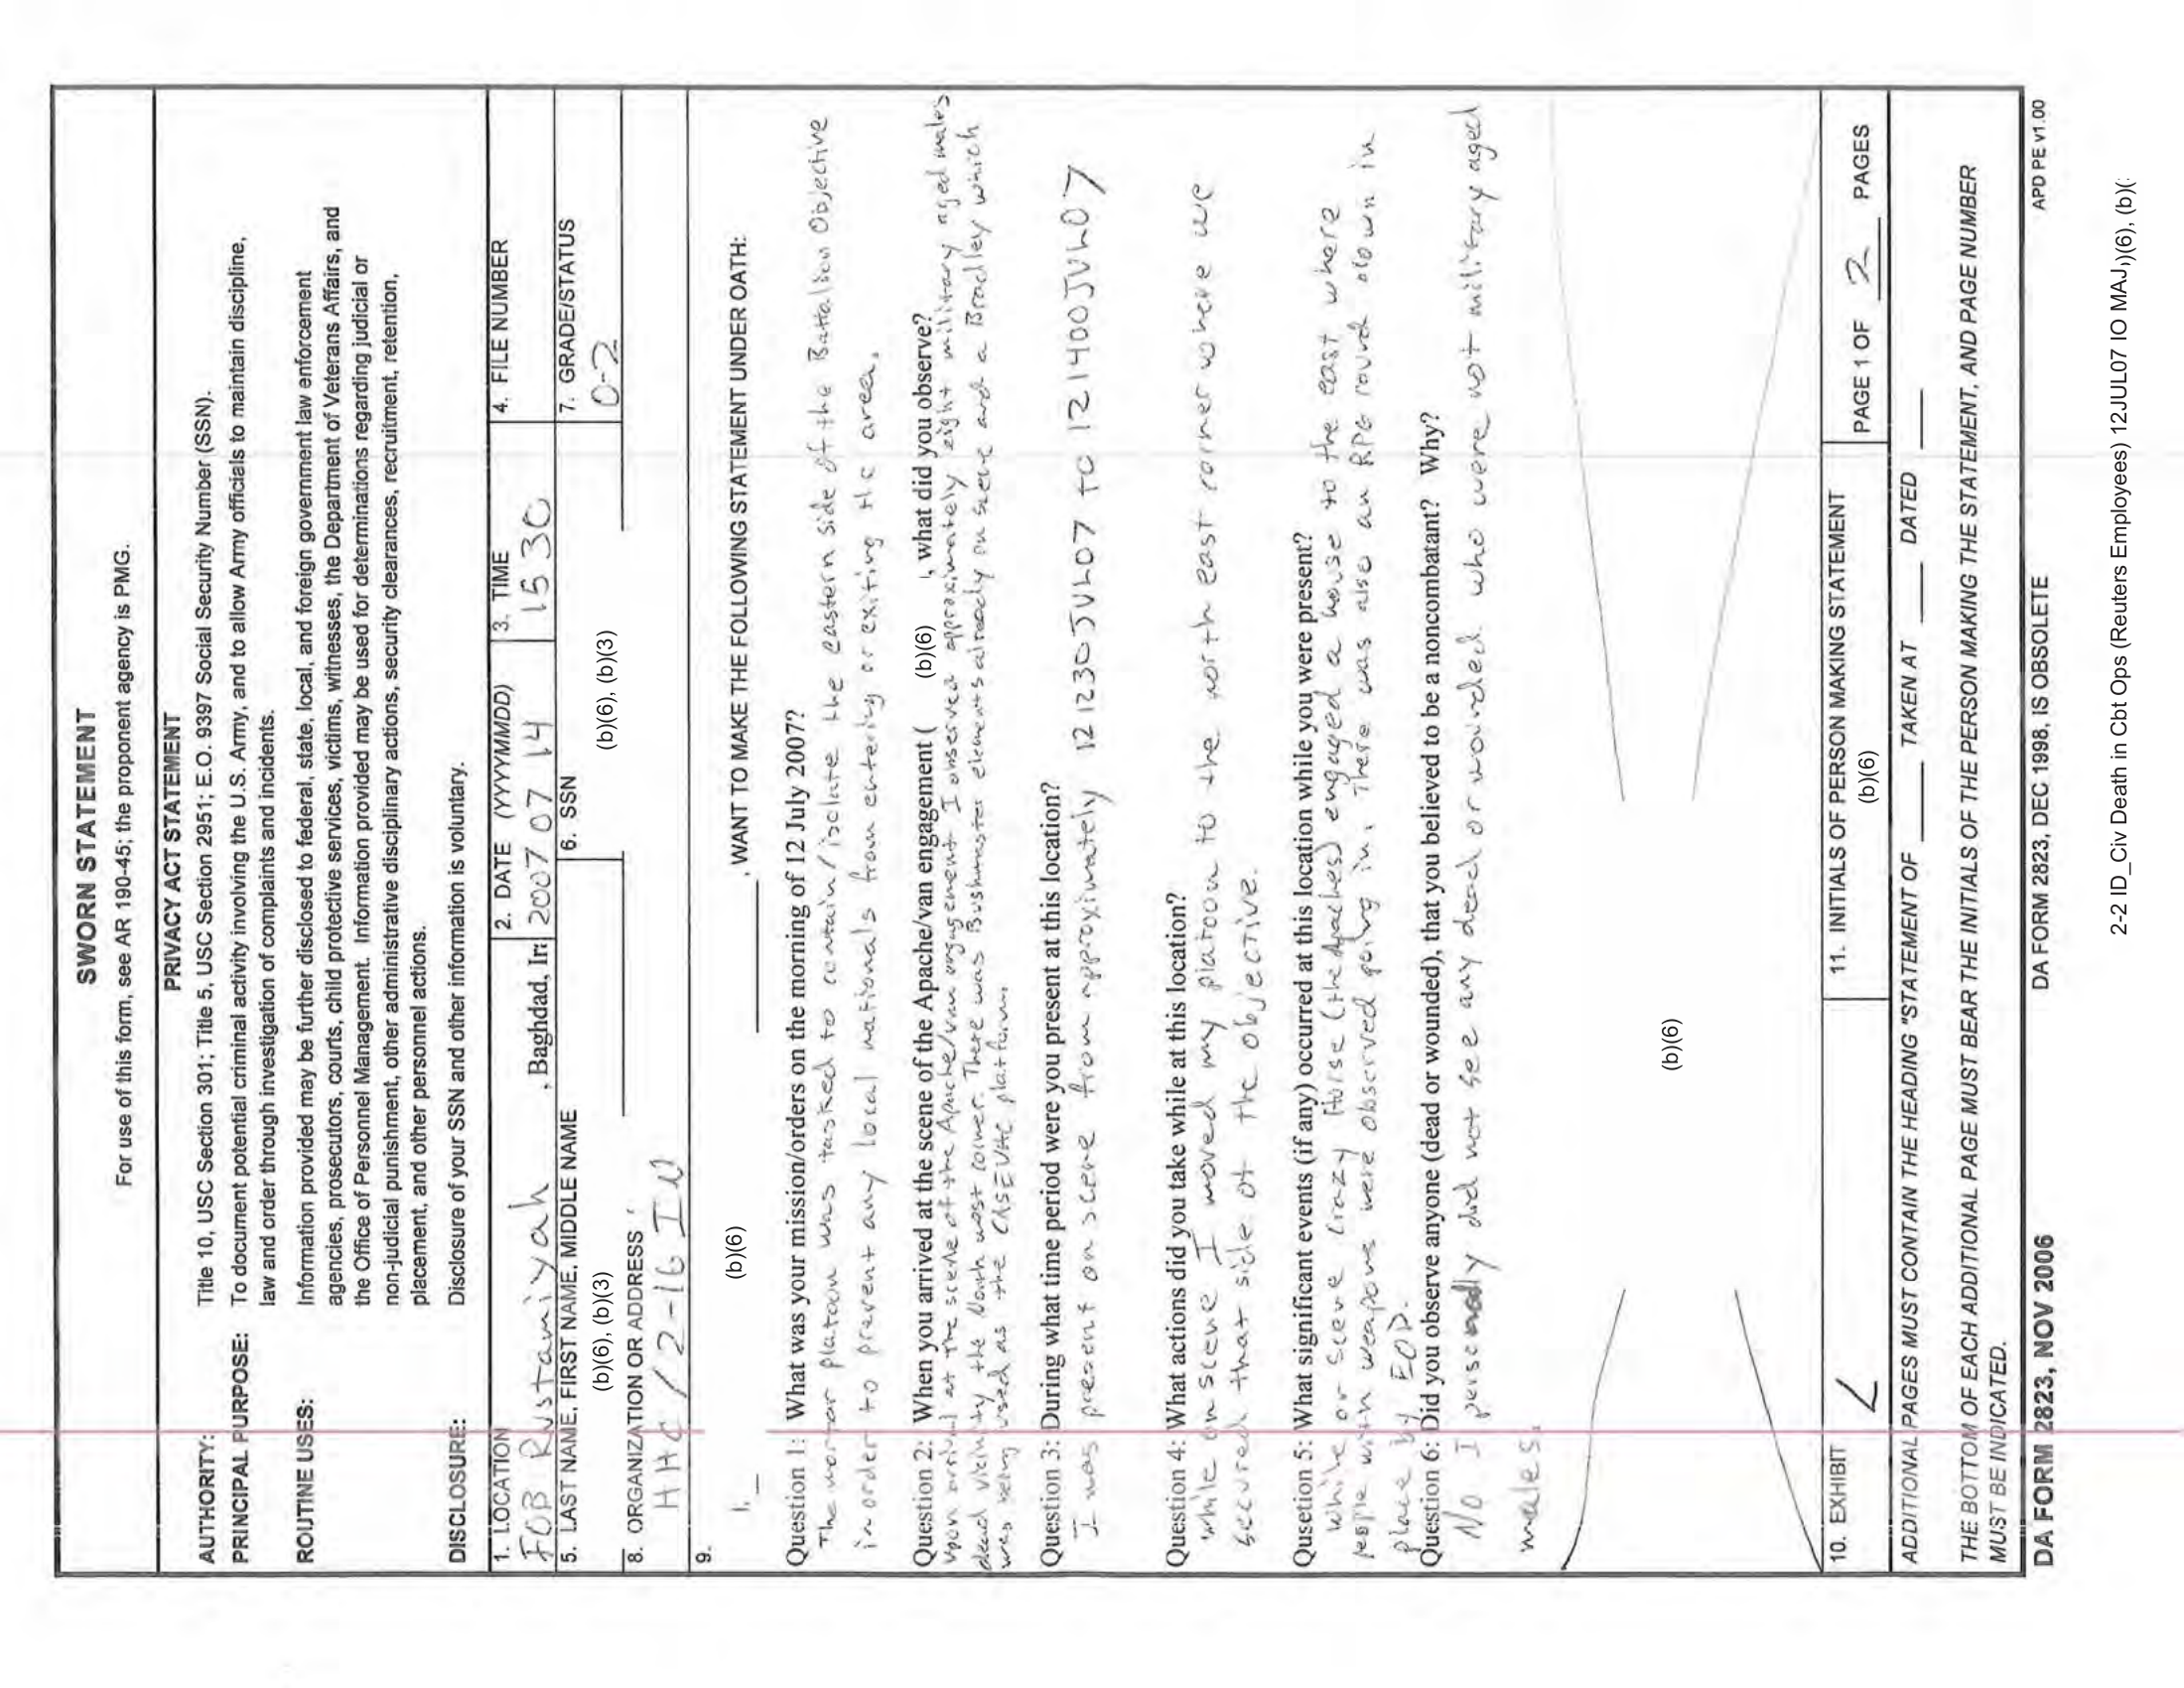 SWORN STATEMENT
For use of this form, see AR 190-45; the proponent agency is PMG.
PRIVACY ACT STATEMENT
AUTHORITY: Title 10, USC Section 301; Title 5, USC Section 2951; E.O. 9397 Social Security Number (SSN).
PRINCIPAL PURPOSE: To document potential criminal activity involving the U.S. Army, and to allow Army officials to maintain discipline,
law and order through investigation of complaints and incidents.
ROUTINE USES: Information provided may be further disclosed to federal, state, local, and foreign government law enforcement
agencies, prosecutors, courts, child protective services, victims, witnesses, the Department of Veterans Affairs, and
the Office of Personnel Management. Information provided may be used for determinations regarding judicial or
non-judicial punishment, other administrative disciplinary actions, security clearances, recruitment, retention,
placement, and other personnel actions.
DISCLOSURE: Disclosure of your SSN and other information is voluntary.
1. LOCATION 2. DATE (YYYYMMDD) 3. TIME 4. FILE NUMBER
FOB Rustamiyah , Baghdad, Ir 2007 07 14 1530
5. LAST NAME, FIRST NAME, MIDDLE NAME 6. SSN 7. GRADE/STATUS
(b)(6), (b)(3) (b)(6), (b)(3) O-2
8. ORGANIZATION OR ADDRESS
HHC / 2-16 IN
9.
I, (b)(6) , WANT TO MAKE THE FOLLOWING STATEMENT UNDER OATH:
Question 1: What was your mission/orders on the morning of 12 July 2007?
The mortar platoon was tasked to contain/isolate the eastern side of the Battalion Objective
in order to prevent any local nationals from entering or exiting the area.
Question 2: When you arrived at the scene of the Apache/van engagement ( (b)(6) , what did you observe?
Upon arrival at the scene of the Apache/van engagement I observed approximately eight military aged males
dead vicinity the North west corner. There was Bushmaster elements already on scene and a Bradley which
was being used as the CASEVAC platform.
Question 3: During what time period were you present at this location?
I was present on scene from approximately 121230JUL07 to 121400JUL07
Question 4: What actions did you take while at this location?
While on scene I moved my platoon to the north east corner where we
secured that side of the objective.
Qusetion 5: What significant events (if any) occurred at this location while you were present?
While on scene Crazy Horse (the Apaches) engaged a house to the east where
people with weapons were observed going in. There was also an RPG round blown in
place by EOD.
Question 6: Did you observe anyone (dead or wounded), that you believed to be a noncombatant? Why?
No I personally did not see any dead or wounded who were not military aged
males.
(b)(6)
10. EXHIBIT 11. INITIALS OF PERSON MAKING STATEMENT
(b)(6) PAGE 1 OF 2 PAGES
ADDITIONAL PAGES MUST CONTAIN THE HEADING "STATEMENT OF TAKEN AT DATED
THE BOTTOM OF EACH ADDITIONAL PAGE MUST BEAR THE INITIALS OF THE PERSON MAKING THE STATEMENT, AND PAGE NUMBER
MUST BE INDICATED.
DA FORM 2823, NOV 2006 DA FORM 2823, DEC 1998, IS OBSOLETE APD PE v1.00
2-2 ID_Civ Death in Cbt Ops (Reuters Employees) 12JUL07 IO MAJ,)(6), (b)(